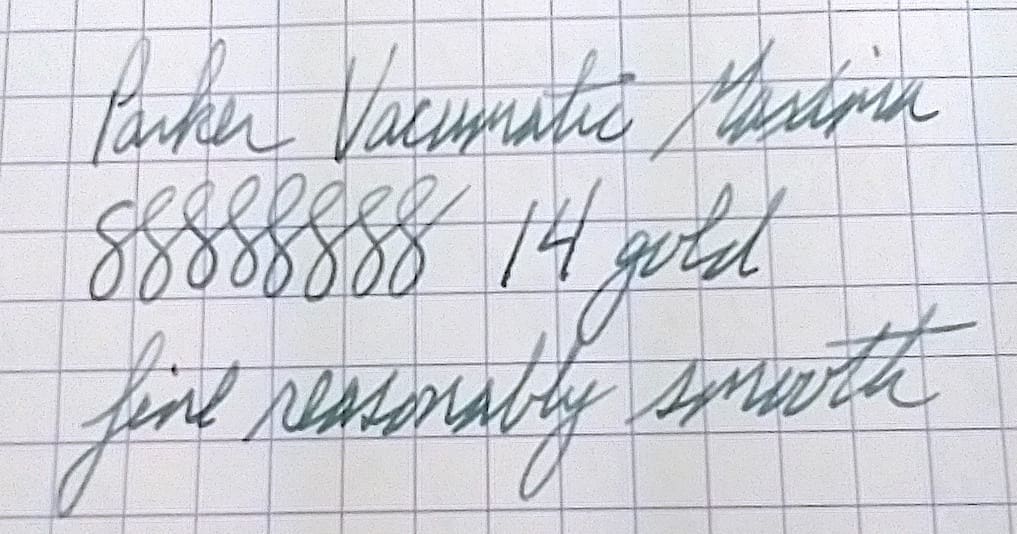 Parker Vacumatic Maxima
88888888 14 gold
fine reasonably smooth